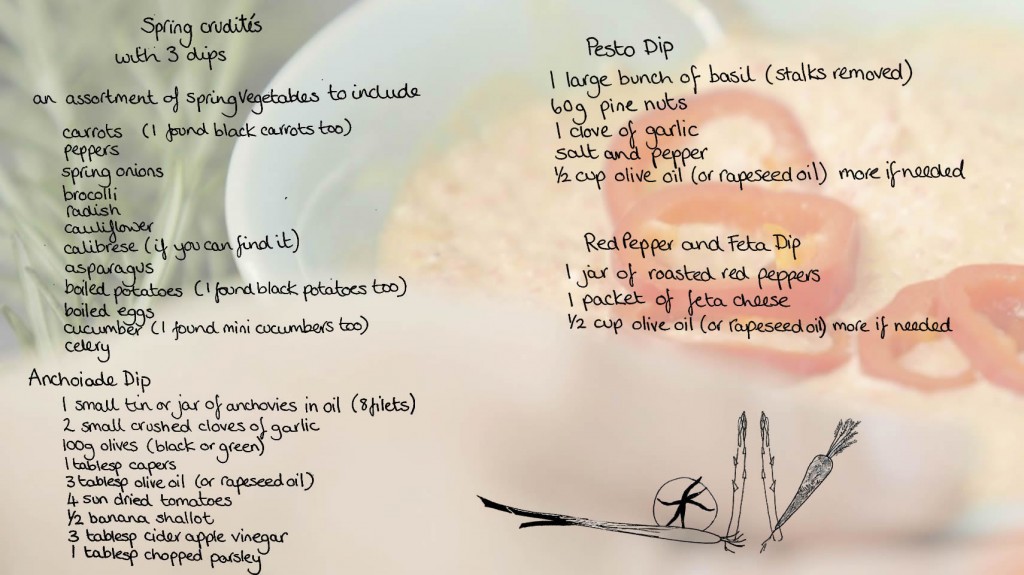 Spring crudités
with 3 dips
an assortment of spring vegetables to include
carrots (I found black carrots too)
peppers
spring onions
brocolli
radish
cauliflower
calibrese (if you can find it)
asparagus
boiled potatoes (I found black potatoes too)
boiled eggs
cucumber (I found mini cucumbers too)
celery
Anchoiade Dip
1 small tin or jar of anchovies in oil (8 filets)
2 small crushed cloves of garlic
100g olives (black or green)
1 tablesp capers
3 tablesp olive oil (or rapeseed oil)
4 sun dried tomatoes
½ banana shallot
3 tablesp cider apple vinegar
1 tablesp chopped parsley
Pesto Dip
1 large bunch of basil (stalks removed)
60g pine nuts
1 clove of garlic
salt and pepper
½ cup olive oil (or rapeseed oil) more if needed
Red Pepper and Feta Dip
1 jar of roasted red peppers
1 packet of feta cheese
½ cup olive oil (or rapeseed oil) more if needed